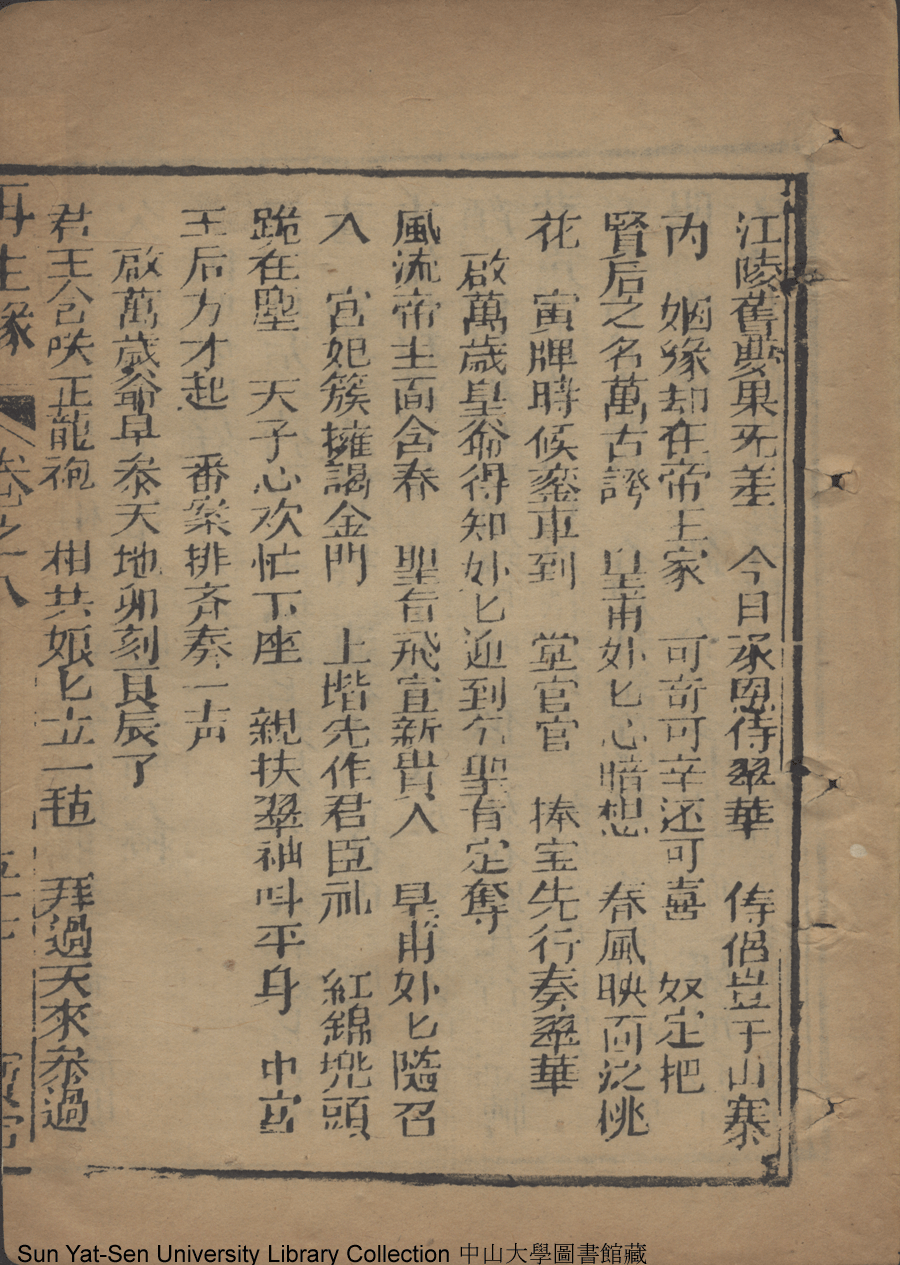 江陵舊夢果无差　今日承恩侍翠華　侍侶豈于山寨
內　姻緣却在帝王家　可奇可幸还可喜　奴定把
賢后之名萬古誇　皇甫妙匕心暗想　春風映面泛桃
花　寅牌時候鑾車到　堂官官　捧宝先行奏翠華
啟萬歲皇爺得知妙匕迎到乞聖旨定奪
風流帝主面含春　聖旨飛宣新貴入　皇甫妙匕隨召
入　宮妃簇擁謁金門　上堦先作君臣礼　紅錦兜頭
跪在塵　天子心欢忙下座　親扶翠袖呌平身　中宮
王后方才起　番案排齐奏一声
啟萬歲爺早叅天地卯刻良辰了
君王含咲正龍袍　相共娘匕立一毡　拜過天來叅過
再生緣　卷之八
Sun Yat-Sen University Library Collection 中山大學圖書館藏